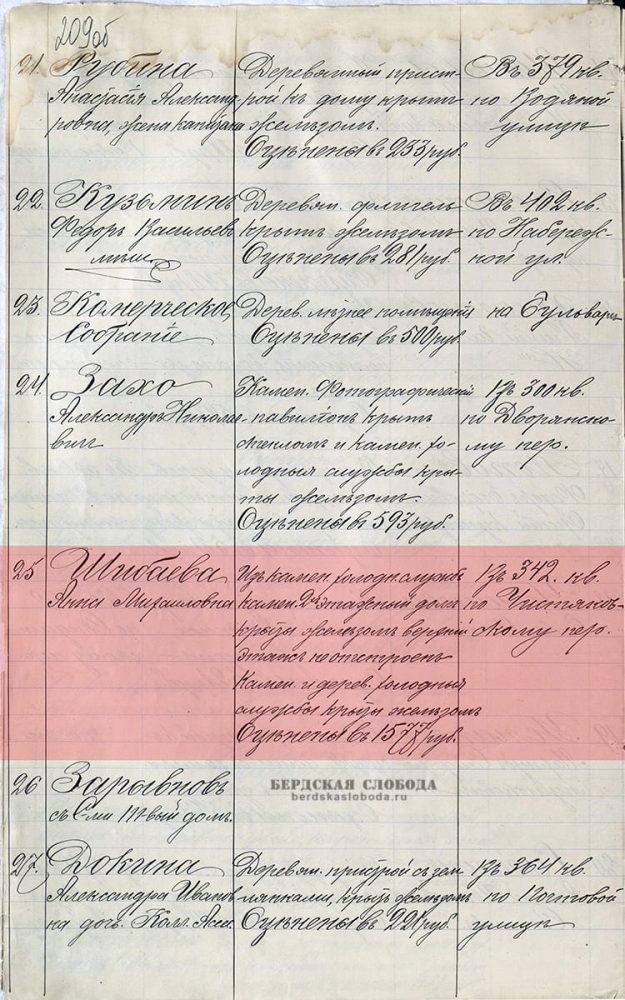 209об
21. Рубина
Анастасья Александ-
ровна, жена капитана
Деревянный прист-
рой къ дому крытъ
желѣзомъ.
Оцѣнены въ 233 руб.
Въ 379 кв.
по Водяной
улицѣ
22. Кузьминъ
Федоръ Васильев
мѣщ.
Деревян. флигель
крытъ желѣзомъ
Оцѣнены въ 281 руб.
Въ 402 кв.
по Набереж-
ной ул.
23. Комерческое
Собраніе
Дерев. лѣтнее помѣщенія
Оцѣнены въ 500 руб.
на Бульварѣ
24. Захо
Александръ Никола-
вич
Камен. Фотографическій
павиліонъ крытъ
стекломъ и камен. хо-
лодныя службы кры-
ты желѣзомъ.
Оцѣнены въ 593 руб.
Въ 300 кв.
по Дворянско-
му пер.
25 Шибаева
Анна Михаиловна
Изъ камен. холодн. службъ
камен. 2х этажный домъ
крыты желѣзомъ верхній
этажъ не отстроенъ
Камен. и дерев. холодныя
службы крыты желѣзомъ
Оцѣнены въ 1577 руб.
Въ 342. кв.
по Чистяков-
скому пер.
26 Зарывновъ
съ Сми домъ.
БЕРДСКАЯ СЛОБОДА
berdskasloboda.ru
27. Докина
Александра Иванов
на доч. Колл. Асс.
Деревян. пристрой съ зем
лянками, крытъ желѣзомъ
Оцѣнены въ 221 руб.
Въ 364 кв.
по Почтовой
улицѣ